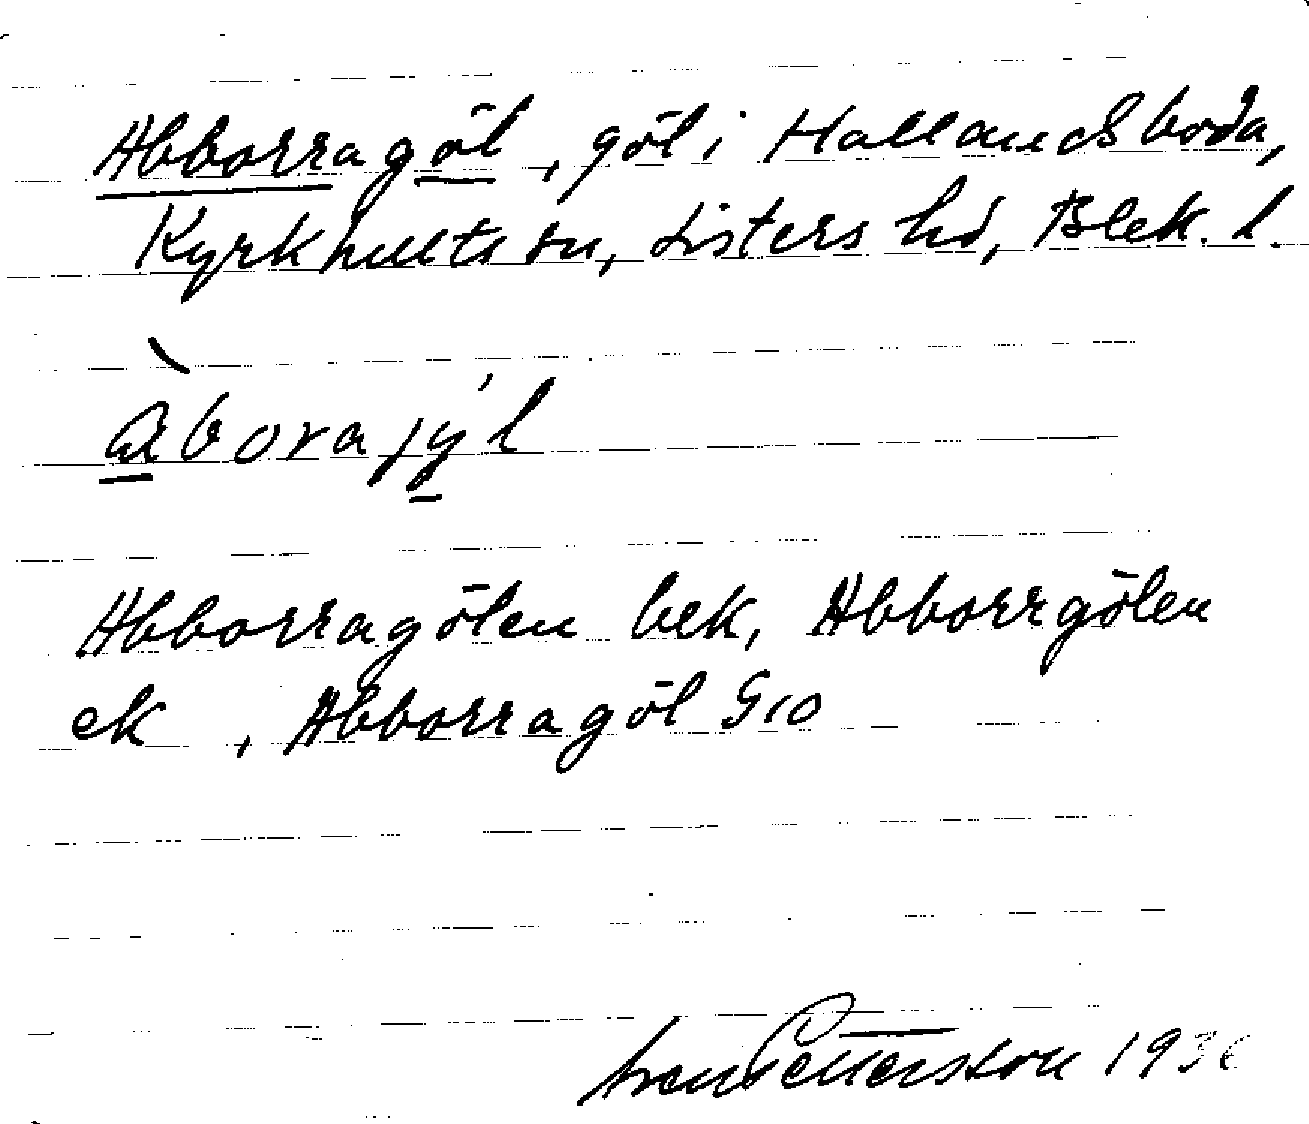 Abborragöl, göl i Hallandsboda,
Kyrkhults sn, Listers hd, Blek. l.
àborajýl
Abborragölen bek, Abborrgölen
ek, Abborragöl G10
Sven Pettersson 1936